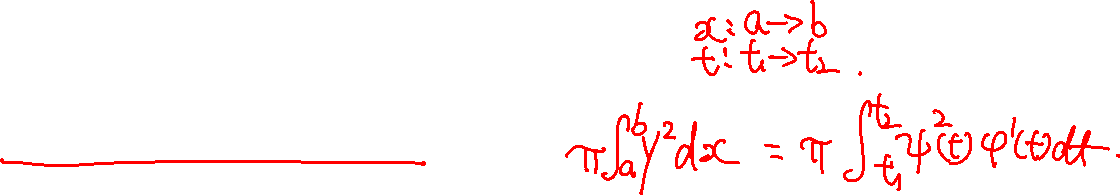 x: a→b
t: t₁→t₂.
π∫ₐᵇ y² dx = π∫_{t₁}^{t₂} ψ²(t) φ'(t) dt.